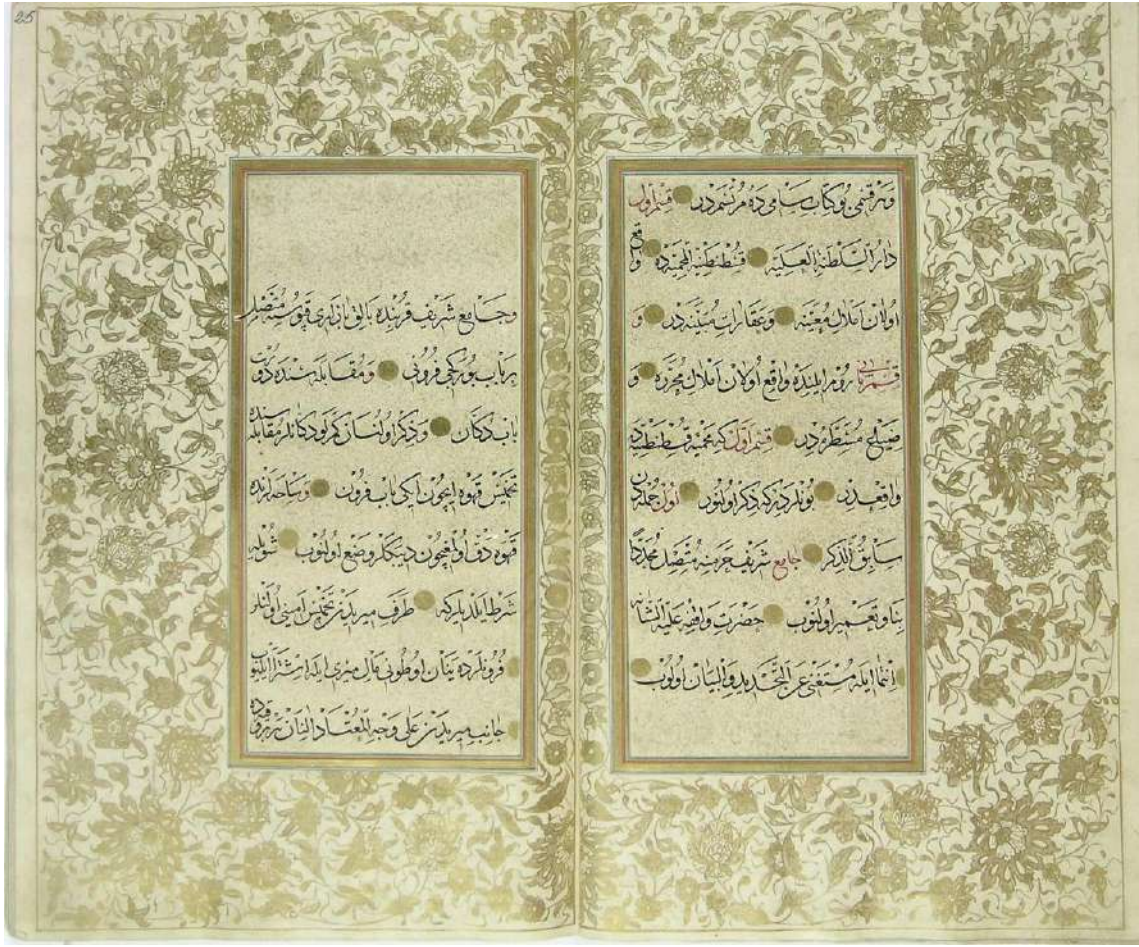 وهر قسمی بو کتاب سامی ده مرتسمدر قسم اول
دار السلطنة العلیه قسطنطنیة المحمیه ده واقع
اولان املاك معینه وعقارات متبینه در و
قسم ثانی روم ایلنده واقع اولان املاك محرره و
ضیاع مستطره در قسم اول که محمیه قسطنطنیه ده
واقعدر بونلردر که ذکر اولنور اول جمله دن
سابق الذکر جامع شریف حرمنه متصل مجددا
بنا وتعمیر اولنوب حضرت واقفه علیة الشانه
انتما ایله مستغنی عن التحدید والبیان اولوب
25
وجامع شریف قربنده بالق بازاری قپوسنه متصل
بر باب بورکجی فرونی ومقابله سنده دورت
باب دکان وذکر اولنان کمرلو دکانلر مقابله سنده
تخمیس قهوه ایچون ایکی باب فرون وساحه لرنده
قهوه دق اولنمقچون دیبکلر وضع اولنوب شویله
شرط ایلدیلر که طرف میریدن تخمیس امینی اولانلر
فرونلرده ینان اوطونی مال میری ایله اشترا ایلیوب
جانب میریدن علی وجه المعتاد النان هر وقیه ده